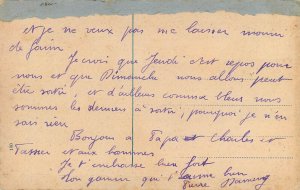 et je ne veux pas me laisser mourir
de faim.
Je crois que Jeudi c'est repos pour
nous et que Dimanche nous allons peut
être sortir, et d'ailleurs comme bleus nous
sommes les derniers à sortir, pourquoi je n'en
sais rien
Bonjour à Papa et Charles et
Tasser et aux hommes
Je t'embrasse bien fort
Ton gamin qui t'aime bien
Pierre